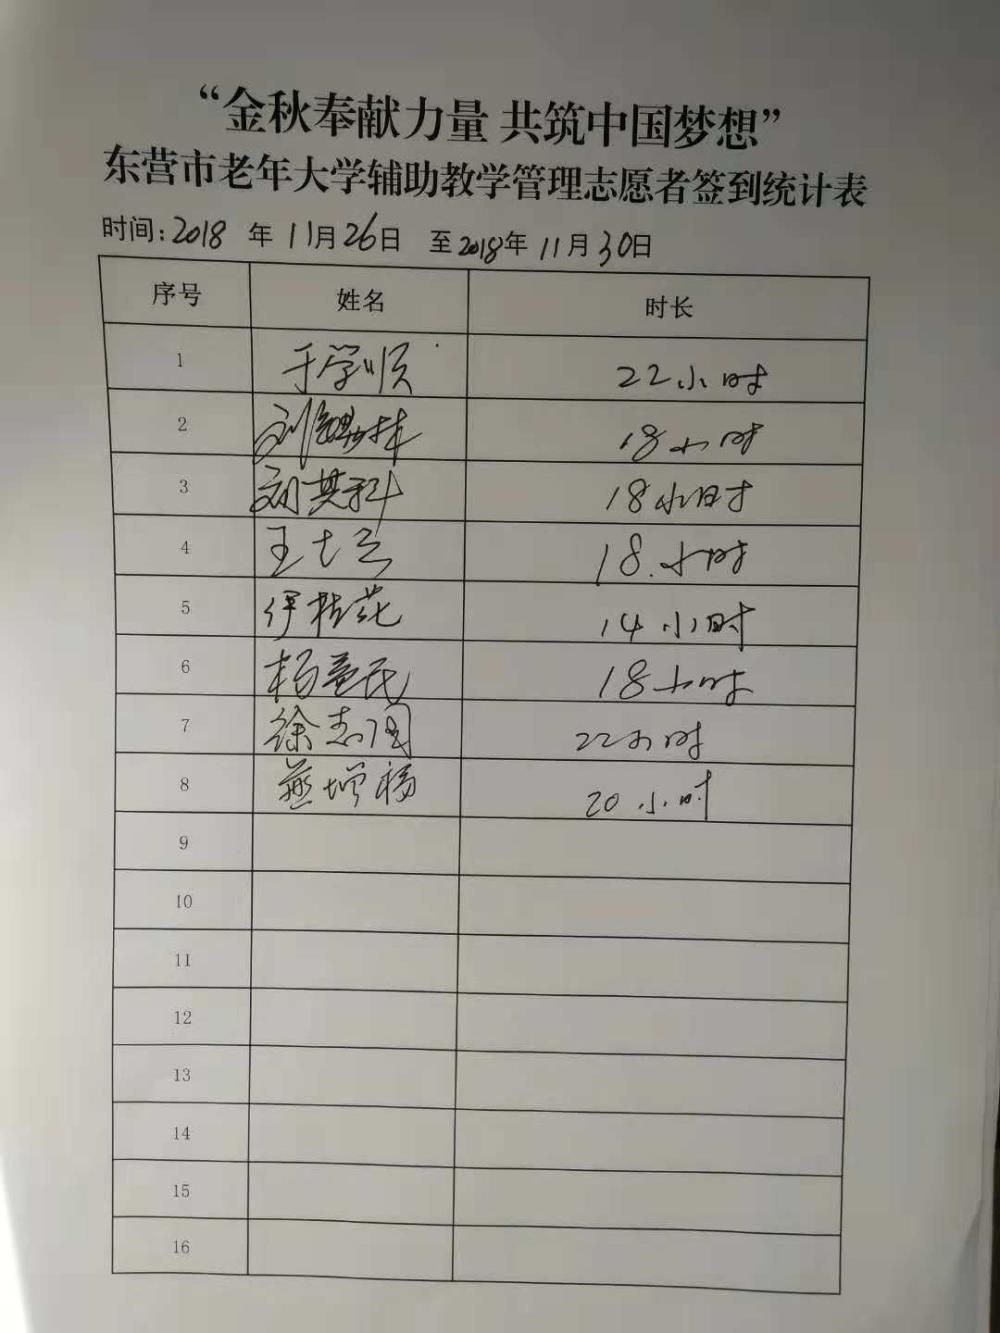 “金秋奉献力量 共筑中国梦想”
东营市老年大学辅助教学管理志愿者签到统计表
时间:2018 年 11月26日 至2018年11月30日
序号 姓名 时长
1 于学顺 22小时
2 18小时
3 刘其科 18小时
4 王士兰 18.小时
5 伊桂花 14小时
6 杨 民 18小时
7 徐志国 22小时
8 燕增杨 20小时
9
10
11
12
13
14
15
16